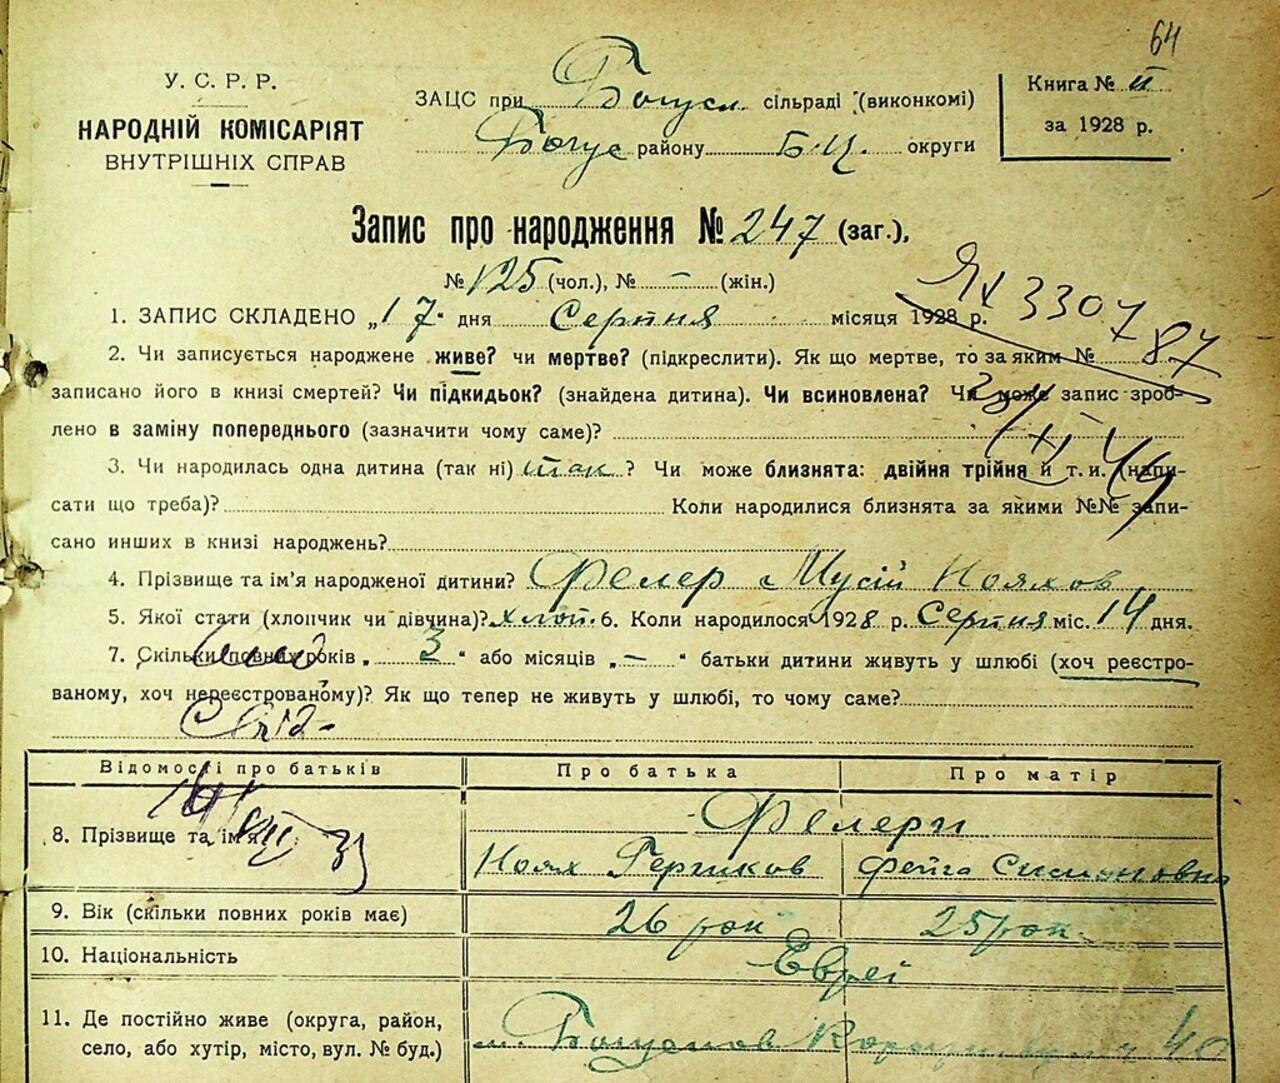 64
У. С. Р. Р.
НАРОДНІЙ КОМІСАРІЯТ
ВНУТРІШНІХ СПРАВ
ЗАЦС при Богусл. сільраді (виконкомі)
Богус району Б.Ц. округи
Книга № II
за 1928 р.
Запис про народження № 247 (заг.),
№ 125 (чол.), № – (жін.)
1. ЗАПИС СКЛАДЕНО „17" дня Серпня місяця 1928 р.
3307
87
2. Чи записується народжене живе? чи мертве? (підкреслити). Як що мертве, то за яким №
записано його в книзі смертей? Чи підкидьок? (знайдена дитина). Чи всиновлена? Чи може запис зроб-
лено в заміну попереднього (зазначити чому саме)?
3. Чи народилась одна дитина (так ні) так? Чи може близнята: двійня трійня й т. и. (напи-
сати що треба)? Коли народилися близнята за якими №№ запи-
сано инших в книзі народжень?
4. Прізвище та ім'я народженої дитини? Фелер Мусій Нояхов
5. Якої стати (хлопчик чи дівчина)? хлоп. 6. Коли народилося 1928 р. Серпня міс. 14 дня.
7. Скільки повних років „3" або місяців „–" батьки дитини живуть у шлюбі (хоч реєстро-
ваному, хоч нереєстрованому)? Як що тепер не живуть у шлюбі, то чому саме?
Відомості про батьків Про батька Про матір
8. Прізвище та ім'я
Фелери
Ноях Гершков Фейга Симоновна
9. Вік (скільки повних років має) 26 рок 25 рок.
10. Національність Евреї
11. Де постійно живе (округа, район,
село, або хутір, місто, вул. № буд.)
м. 40